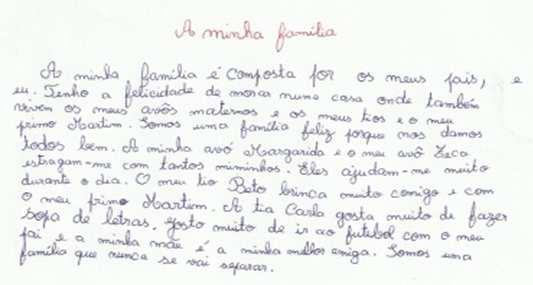 A minha família
A minha família é composta por os meus pais, e
eu. Tenho a felicidade de morar numa casa onde também
vivem os meus avós maternos e os meus tios e o meu
primo Martim. Somos uma família feliz porque nos damos
todos bem. A minha avó Margarida e o meu avô Zeca
estragam-me com tantos miminhos. Eles ajudam-me muito
durante o dia. O meu tio Beto brinca muito comigo e com
o meu primo Martim. A tia Carla gosta muito de fazer
sopa de letras. Gosto muito de ir ao futebol com o meu
pai e a minha mãe é a minha melhor amiga. Somos uma
família que nunca se vai separar.